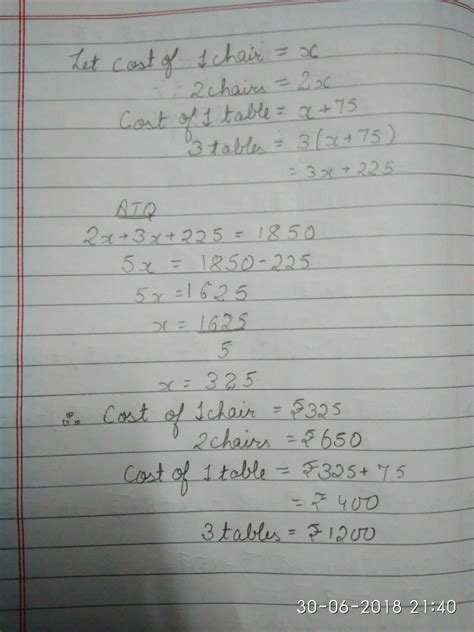 Let cost of 1 chair = x
2 chairs = 2x
Cost of 1 table = x+75
3 tables = 3(x+75)
= 3x+225
ATQ
2x+3x+225 = 1850
5x = 1850-225
5x = 1625
x = 1625
5
x = 325
∴ Cost of 1 chair = ₹325
2 chairs = ₹650
Cost of 1 table = ₹325+75
= ₹400
3 tables = ₹1200
30-06-2018 21:40